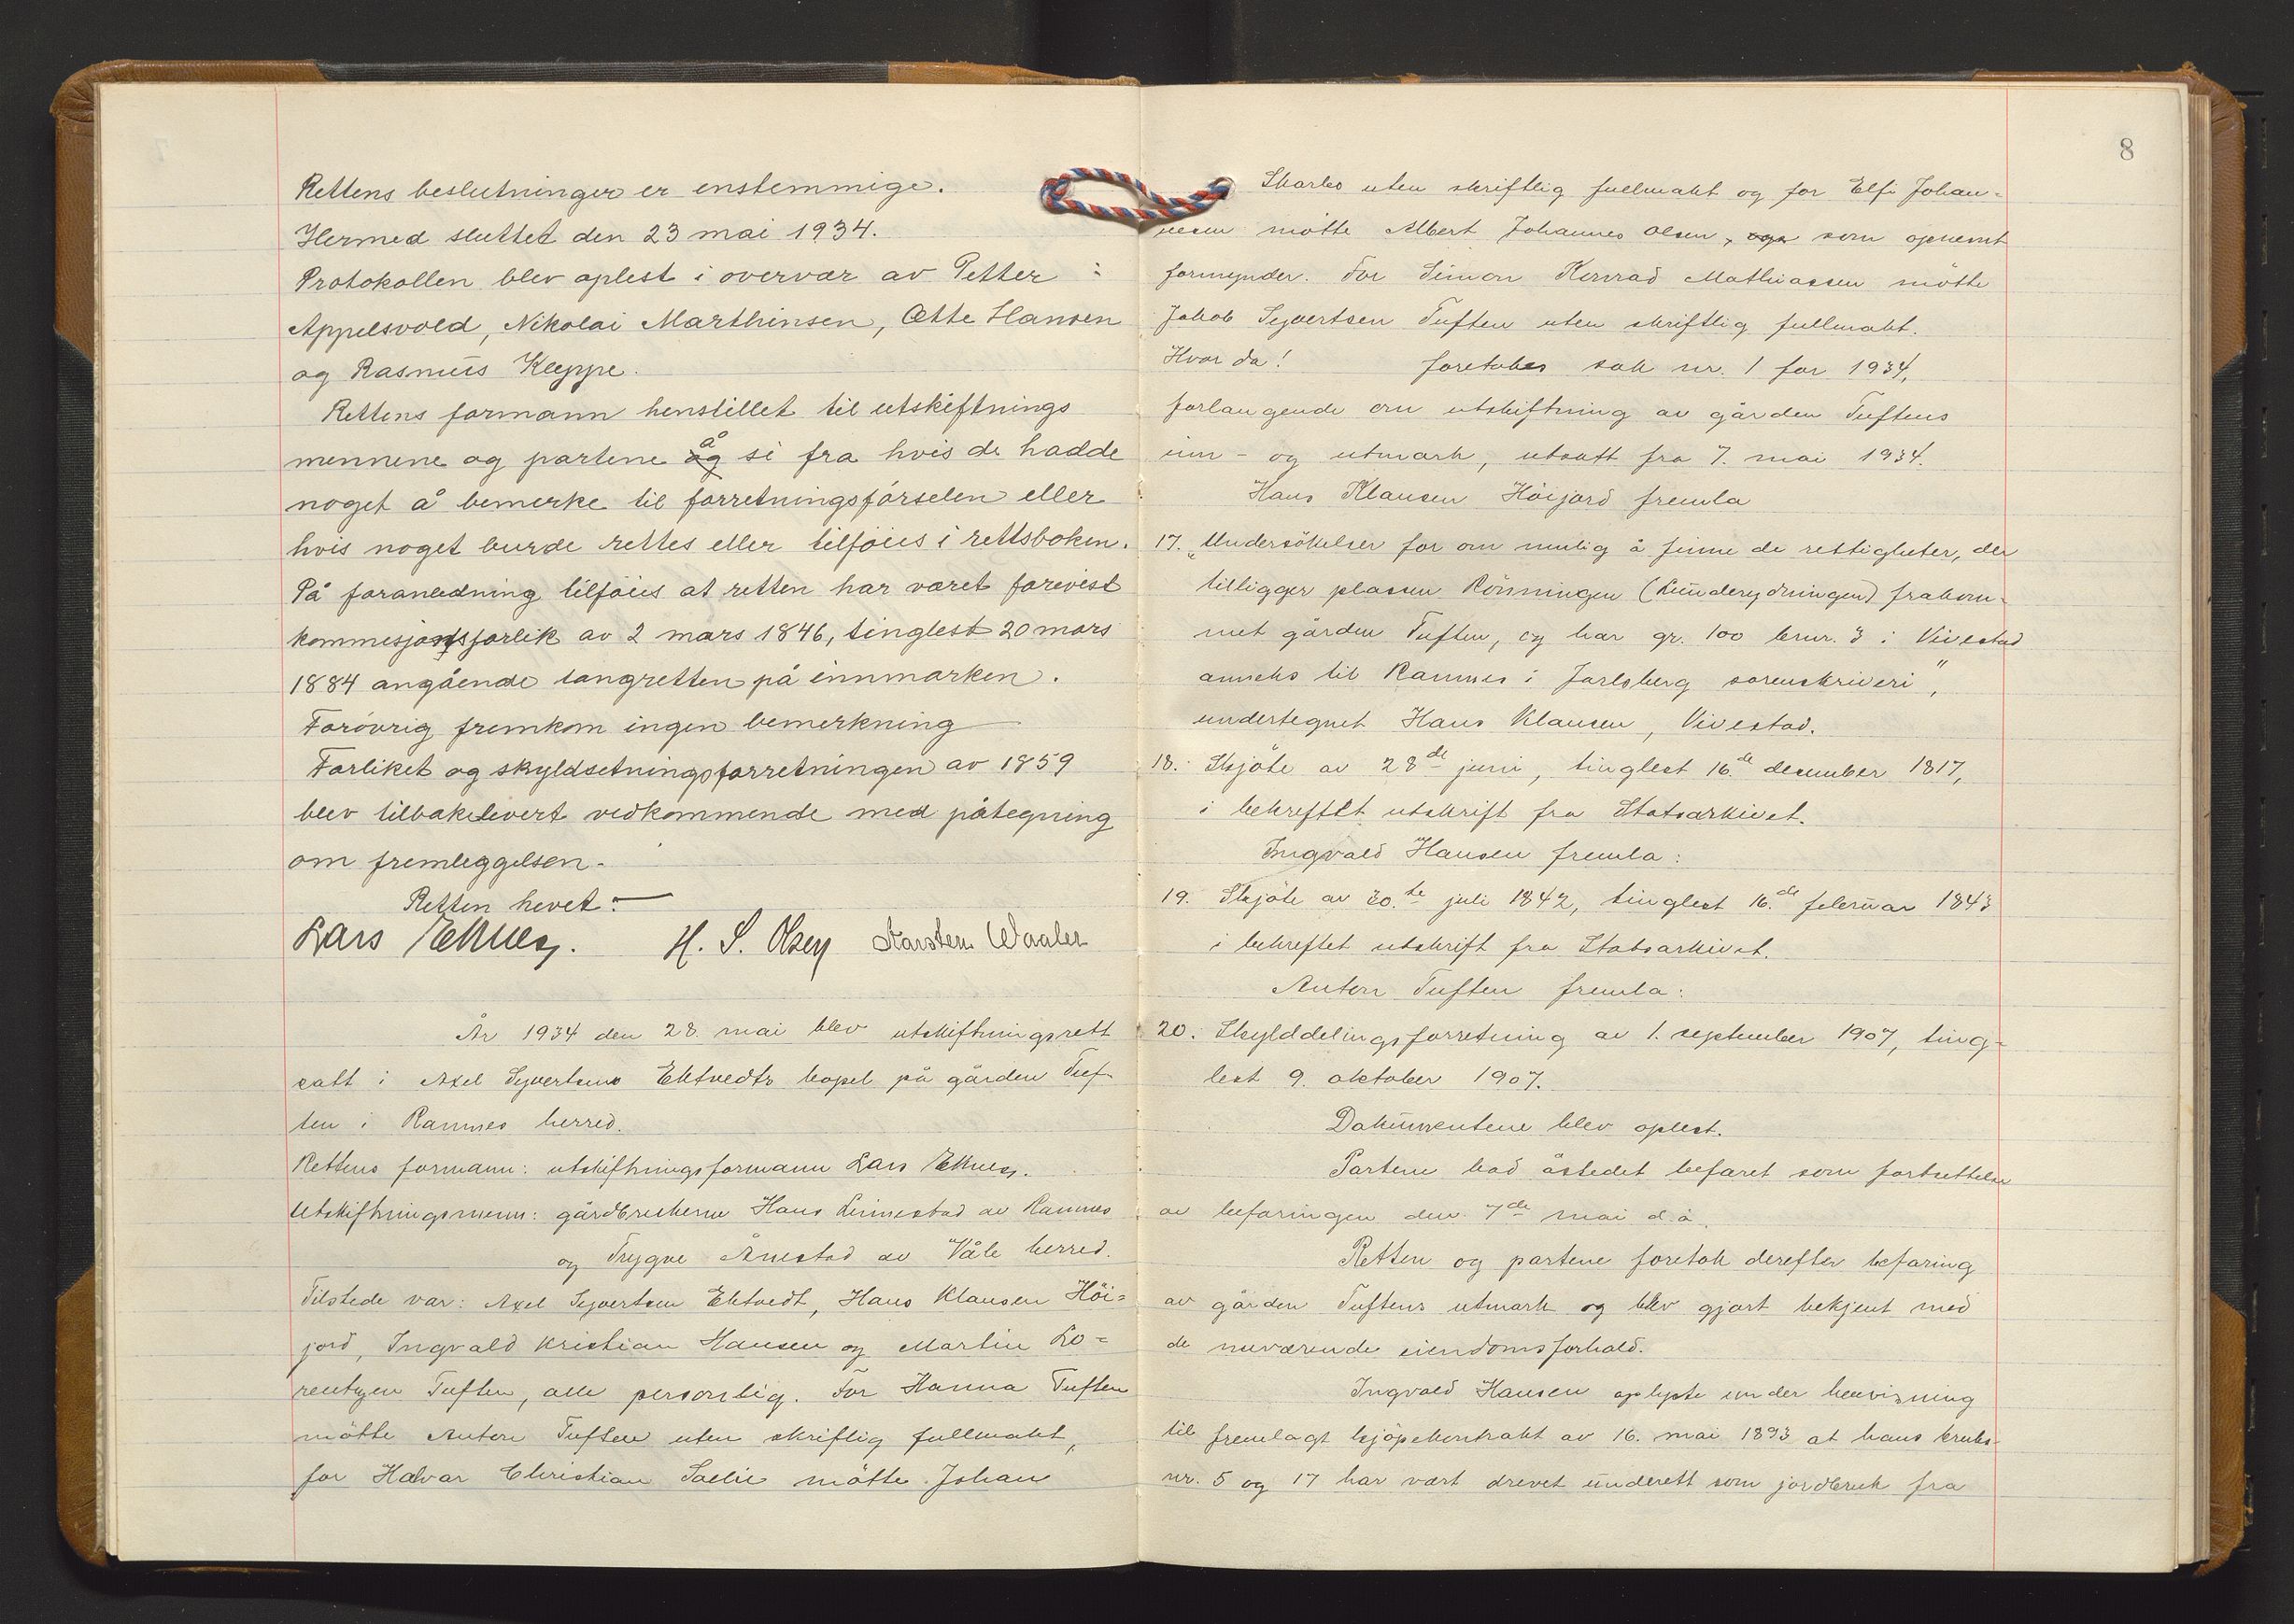 Rettens beslutninger er enstemmige.
Hermed sluttet den 23 mai 1934.
Protokollen blev oplest i overvær av Petter
Appelsvold, Nikolai Marthinsen, Otte Hansen
og Rasmus Kleppe.
Rettens formann henstillet til utskiftnings
mennene og partene å si fra hvis de hadde
noget å bemerke til forretningsførselen eller
hvis noget burde rettes eller tilføies i rettsboken.
På foranledning tilføies at retten har været forevist
kommisjonsforlik av 2 mars 1846, tinglest 20 mars
1884 angående tangretten på innmarken.
Forøvrig fremkom ingen bemerkning
Forliket og skyldsetningsforretningen av 1859
blev tilbakelevert vedkommende med påtegning
om fremleggelsen.
Retten hevet.
Lars H. S. Olsen Karsten Waaler
År 1934 den 28. mai blev utskiftningsrett
satt i Axel Syvertsens Ektvedts bopel på gården Tuf-
ten i Ramnes herred.
Rettens formann: utskiftningsformann Lars
Utskiftningsmenn: gårdbrukerne Hans Linnestad av Ramnes
og Trygve Årnestad av Våle herred.
Tilstede var: Axel Syvertsen Ektvedt, Hans Klausen Höi=
jord, Ingvald Kristian Hansen og Martin Lo=
rentzen Tuften, alle personlig. For Hanna Tuften
mötte Anton Tuften uten skriftlig fullmakt,
for Halvar Christian Sælie mötte Johan
8
Skarbo uten skriftlig fullmakt og for Elfi Johan=
nesen mötte Albert Johannes Olsen, som opnevnt
formynder. For Simon Konrad Mathiassen mötte
Jakob Syvertsen Tuften uten skriftlig fullmakt.
Hvor da! foretokes sak nr. 1 for 1934,
forlangende om utskiftning av gården Tuftens
inn- og utmark, utsatt fra 7. mai 1934.
Hans Klausen Höijord fremla
17. „Undersökelser for om mulig å finne de rettigheter, der
tilligger plassen Rönningen (Lunderydningen) frakom-
met gården Tuften, og har gr. 100 brnr. 3 i Vivestad
anneks til Ramnes i Jarlsberg sorenskriveri",
undertegnet Hans Klausen, Vivestad.
18. Skjöte av 28de juni, tinglest 16.de desember 1817,
i bekreftet utskrift fra Statsarkivet.
Ingvald Hansen fremla:
19. Skjöte av 30.te juli 1842, tinglest 16.de februar 1843
i bekreftet utskrift fra Statsarkivet.
Anton Tuften fremla:
20. Skylddelingsforretning av 1. september 1907, ting-
lest 9. oktober 1907.
Dokumentene blev oplest.
Partene bad åstedet befaret som fortsettelse
av befaringen den 7de mai d.å.
Retten og partene foretok derefter befaring
av gården Tuftens utmark og blev gjort bekjent med
de nuværende eiendomsforhold.
Ingvald Hansen oplyste under henvisning
til fremlagt kjöpekontrakt av 16. mai 1893 at hans bruks-
nr. 5 og 17 har vært drevet underett som jordbruk fra